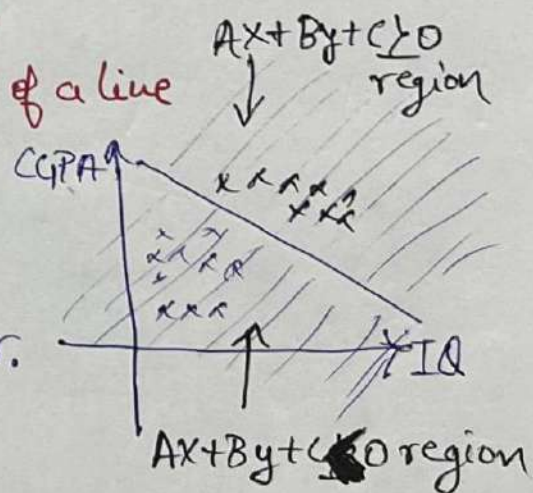 AX+By+C≥0
region
of a line
CGPA
IQ
AX+By+C<0 region